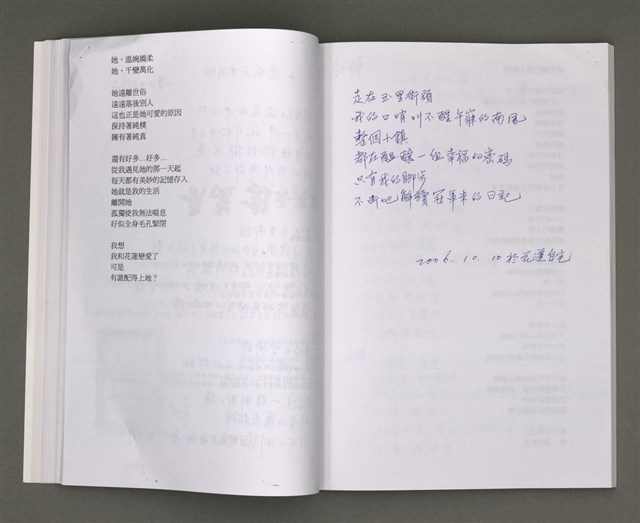 她，溫婉嬌柔
她，千變萬化
她遠離世俗
遠遠落後別人
這也正是她可愛的原因
保持著純樸
擁有著純真
還有好多...好多...
從我遇見她的那一天起
每天都有美妙的記憶存入
她就是我的生活
離開她
孤獨使我無法喘息
好似全身毛孔緊閉
我想
我和花蓮戀愛了
可是
有誰配得上她？
走在玉里街頭
我的口哨叫不醒午寐的南風
整個小鎮
都在醞釀一組幸福的密碼
只有我的腳步
不斷地解讀冠軍米的日記
2006. 10. 10 於花蓮自宅